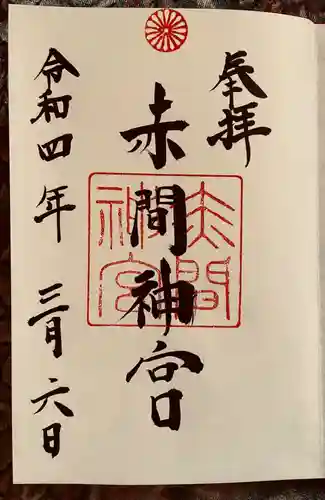 奉拝
赤間神宮
赤間
神宮
令和四年三月六日